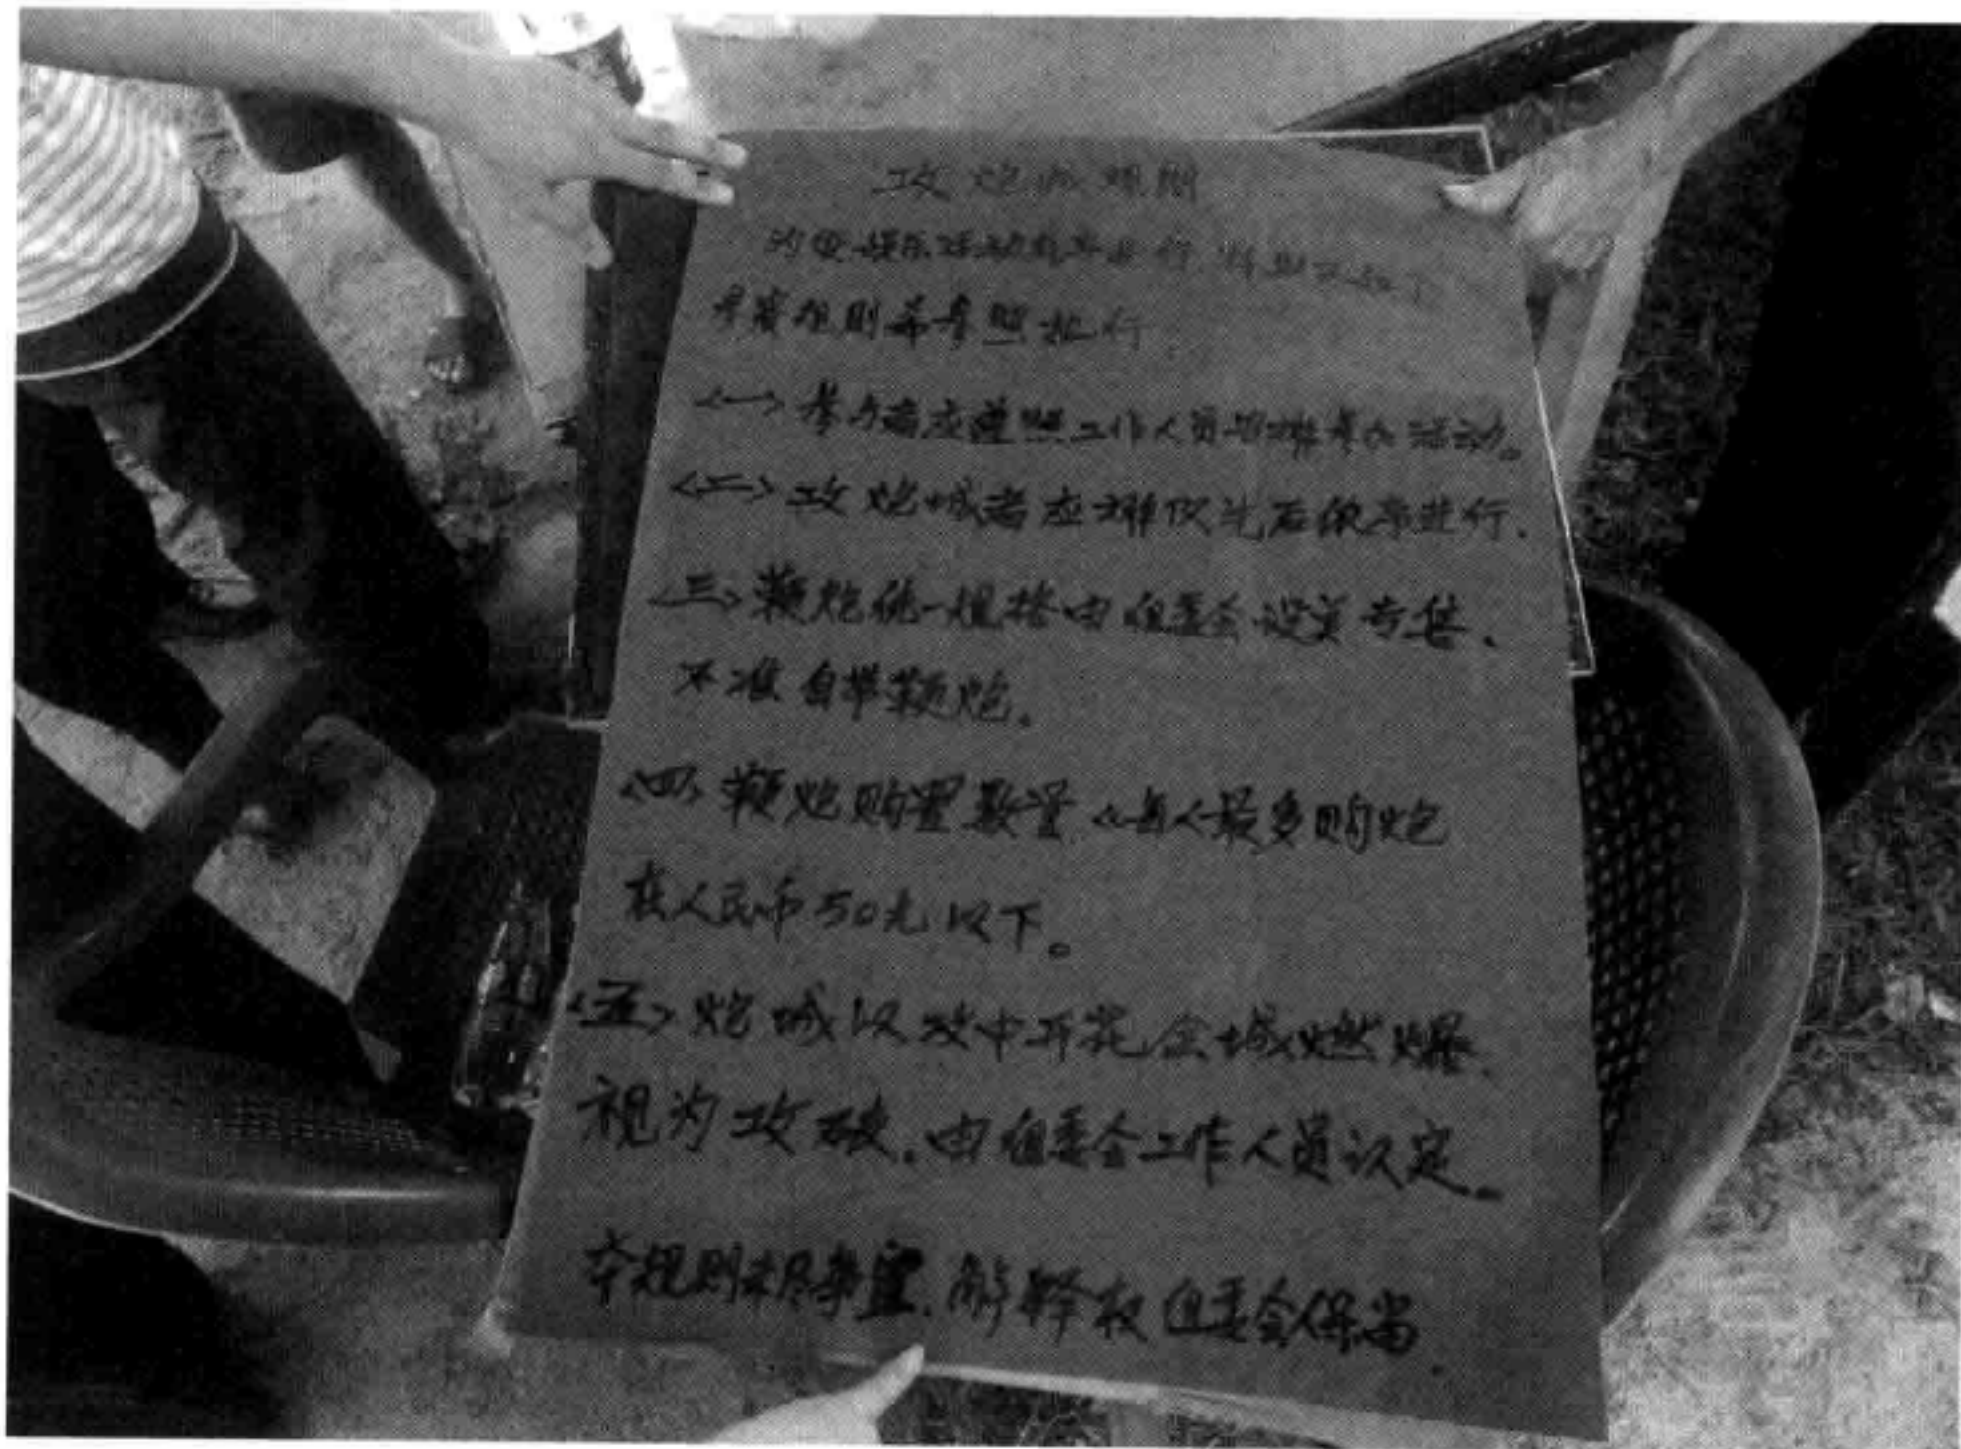 攻炮城规则
为使娱乐活动有序进行,特
规则希参照执行.
<一>参与者应遵照工作人员安排参加活动。
<二>攻炮城者应排队先后依序进行.
<三>鞭炮统一规格由组委会设置专售、
不准自带鞭炮。
<四>鞭炮购置数量《每人最多购炮
在人民币50元以下。
<五>炮城以攻中开花全城燃爆、
视为攻破.由组委会工作人员认定。
本规则未尽事宜.解释权组委会保留.